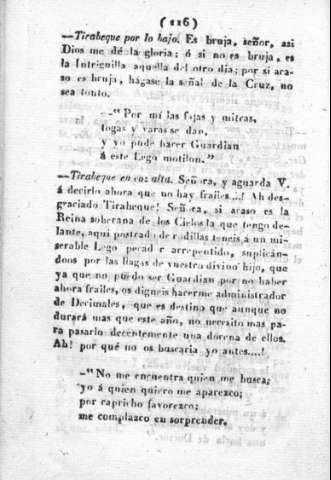 (116)
—Tirabeque por lo bajo. Es bruja, señor, asi
Dios me dé la gloria; ó si no es bruja, es
la Intriguilla aquella del otro dia; por si aca-
so es bruja, hágase la señal de la Cruz, no
sea tonto.
—"Por mí las fajas y mitras,
togas y varas se dan,
y yo pude hacer Guardian
á este Lego motilon."
—Tirabeque en voz alta. Señora, y aguarda V.
á decirlo ahora que no hay frailes...! Ah des-
graciado Tirabeque! Señora, si acaso es la
Reina soberana de los Cielos la que tengo de-
lante, aqui postrado de rodillas teneis á un mi-
serable Lego pecador arrepentido, suplicán-
doos por las llagas de vuestro divino hijo, que
ya que no puedo ser Guardian por no haber
ahora frailes, os digneis hacerme administrador
de Decimales, que es destino que aunque no
durará mas que este año, no necesito mas pa-
ra pasarlo decentemente una docena de ellos.
Ah! por qué no os buscaria yo antes....!
—"No me encuentra quien me busca;
yo á quien quiero me aparezco;
por capricho favorezco;
me complazco en sorprender.